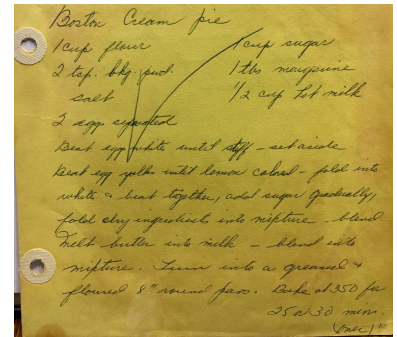 Boston Cream pie
1 cup flour 1 cup sugar
2 tsp. bkg. pwd. 1 tbs margarine
salt 1/2 cup hot milk
2 eggs separated
Beat egg white until stiff - set aside
Beat egg yolks until lemon colored - fold into
white & beat together, add sugar gradually,
fold dry ingredients into mixture - blend
Melt butter into milk - blend into
mixture. Turn into a greased &
floured 8" round pan. Bake at 350 for
25 or 30 min.